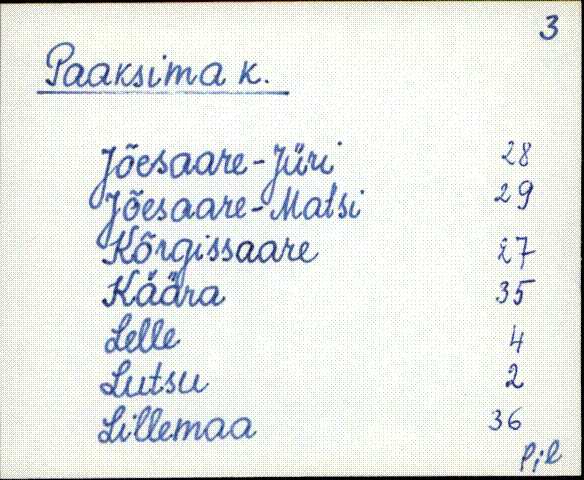 3
Paaksima k.
Jõesaare-Jüri 28
Jõesaare-Matsi 29
Kõrgissaare 27
Käära 35
Lelle 4
Lutsu 2
Lillemaa 36
Pil